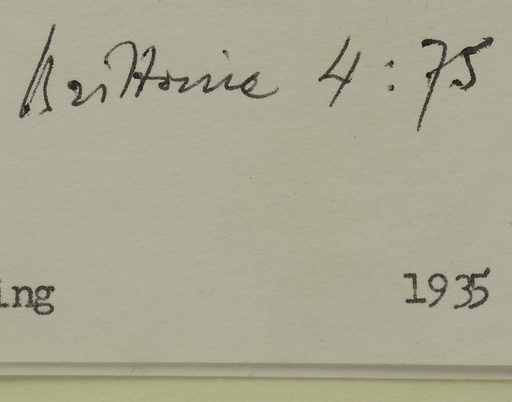 Brittonia 4:75
ing 1935